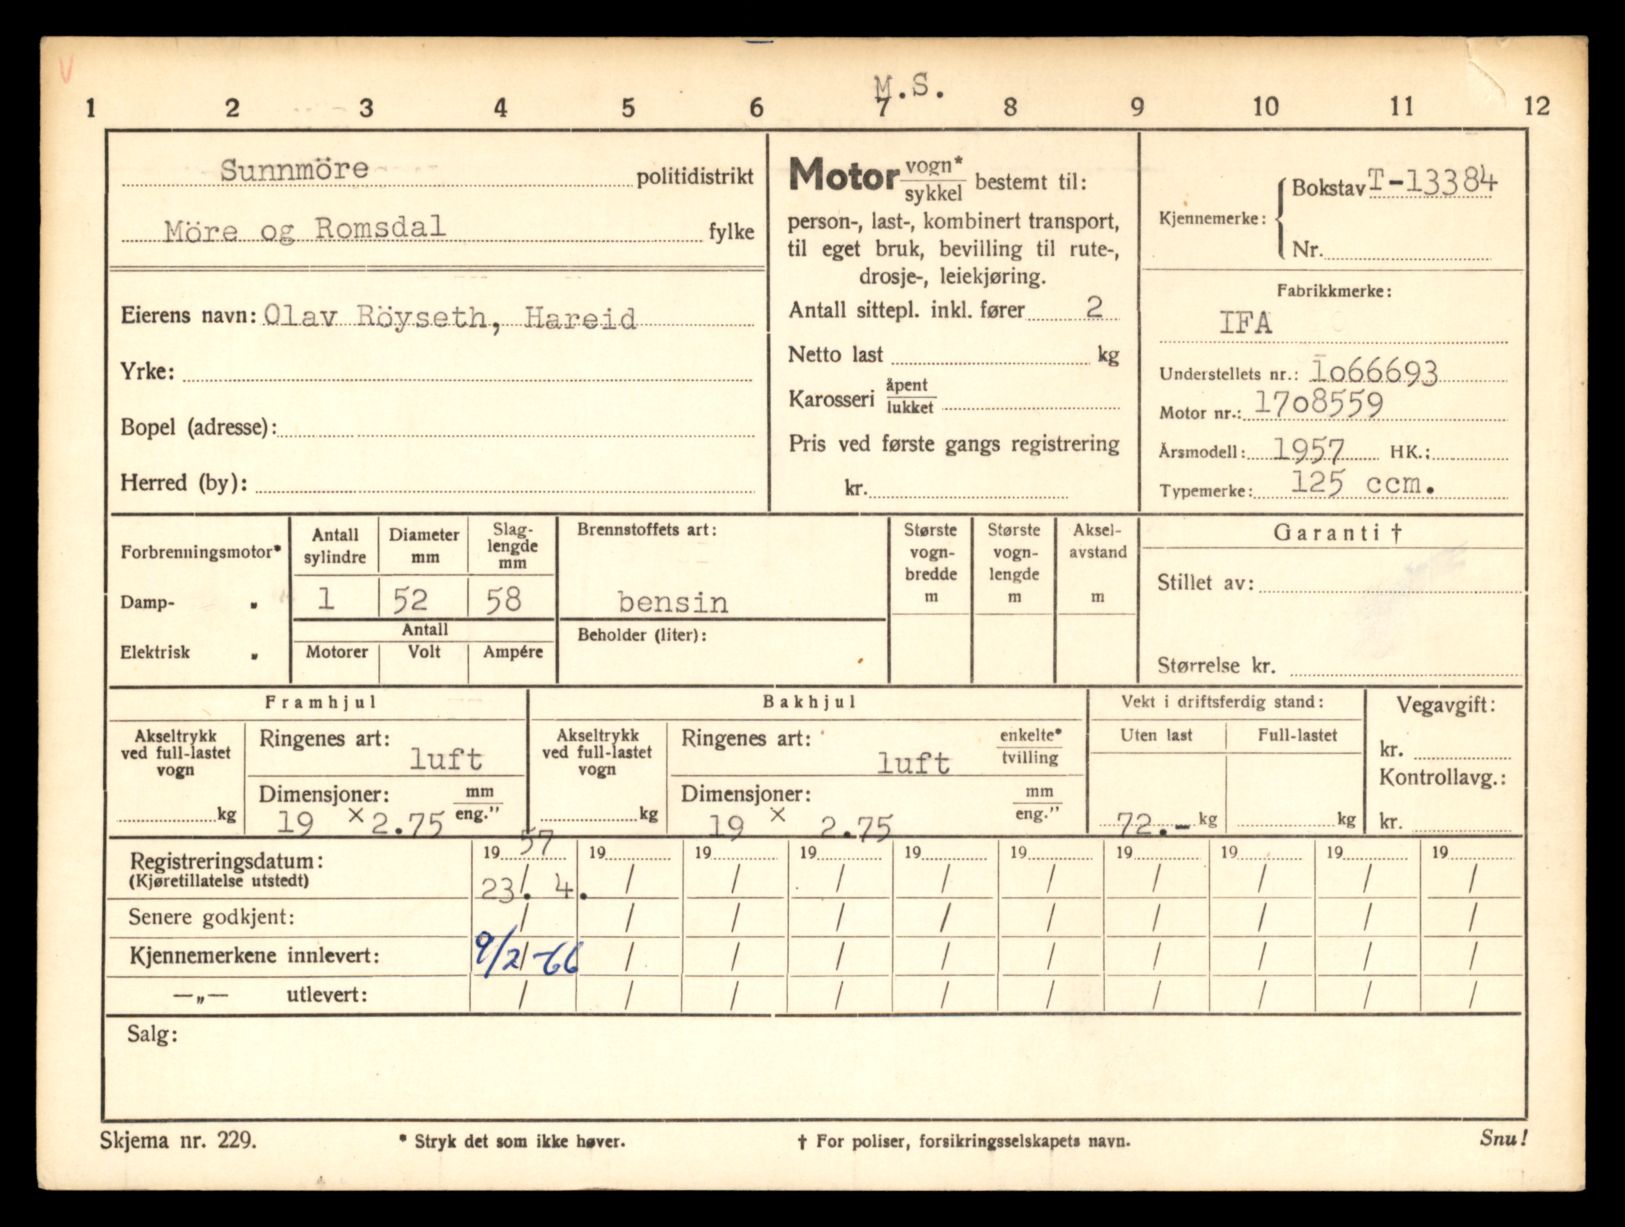 V
M.S.
1 2 3 4 5 6 7 8 9 10 11 12
Sunnmöre politidistrikt
Möre og Romsdal fylke
Eierens navn: Olav Röyseth, Hareid
Yrke:
Bopel (adresse):
Herred (by):
Motor vogn* sykkel bestemt til:
person-, last-, kombinert transport,
til eget bruk, bevilling til rute-,
drosje-, leiekjøring.
Antall sittepl. inkl. fører 2
Netto last kg
Karosseri åpent lukket
Pris ved første gangs registrering
kr.
Kjennemerke: { Bokstav T-13384
Nr.
Fabrikkmerke:
IFA
Understellets nr.: 1o66693
Motor nr.: 17o8559
Årsmodell: 1957 HK.:
Typemerke: 125 ccm.
Forbrenningsmotor*
Damp- „
Elektrisk „
Antall sylindre
1
Diameter mm
52
Slag-lengde mm
58
Antall
Motorer Volt Ampére
Brennstoffets art:
bensin
Beholder (liter):
Største vogn-bredde m
Største vogn-lengde m
Aksel-avstand m
Garanti †
Stillet av:
Størrelse kr.
Framhjul
Akseltrykk ved full-lastet vogn
kg
Ringenes art:
luft
Dimensjoner: mm eng."
19 × 2.75
Bakhjul
Akseltrykk ved full-lastet vogn
kg
Ringenes art: enkelte* tvilling
luft
Dimensjoner: mm eng."
19 × 2.75
Vekt i driftsferdig stand:
Uten last Full-lastet
72.- kg kg
Vegavgift:
kr.
Kontrollavg.:
kr.
Registreringsdatum: 19 57 19 19 19 19 19 19 19 19 19
(Kjøretillatelse utstedt) 23/. 4. / / / / / / / / /
Senere godkjent: / / / / / / / / / /
Kjennemerkene innlevert: 9/2/-66 / / / / / / / / /
—„— utlevert: / / / / / / / / / /
Salg:
Skjema nr. 229. * Stryk det som ikke høver. † For poliser, forsikringsselskapets navn. Snu!